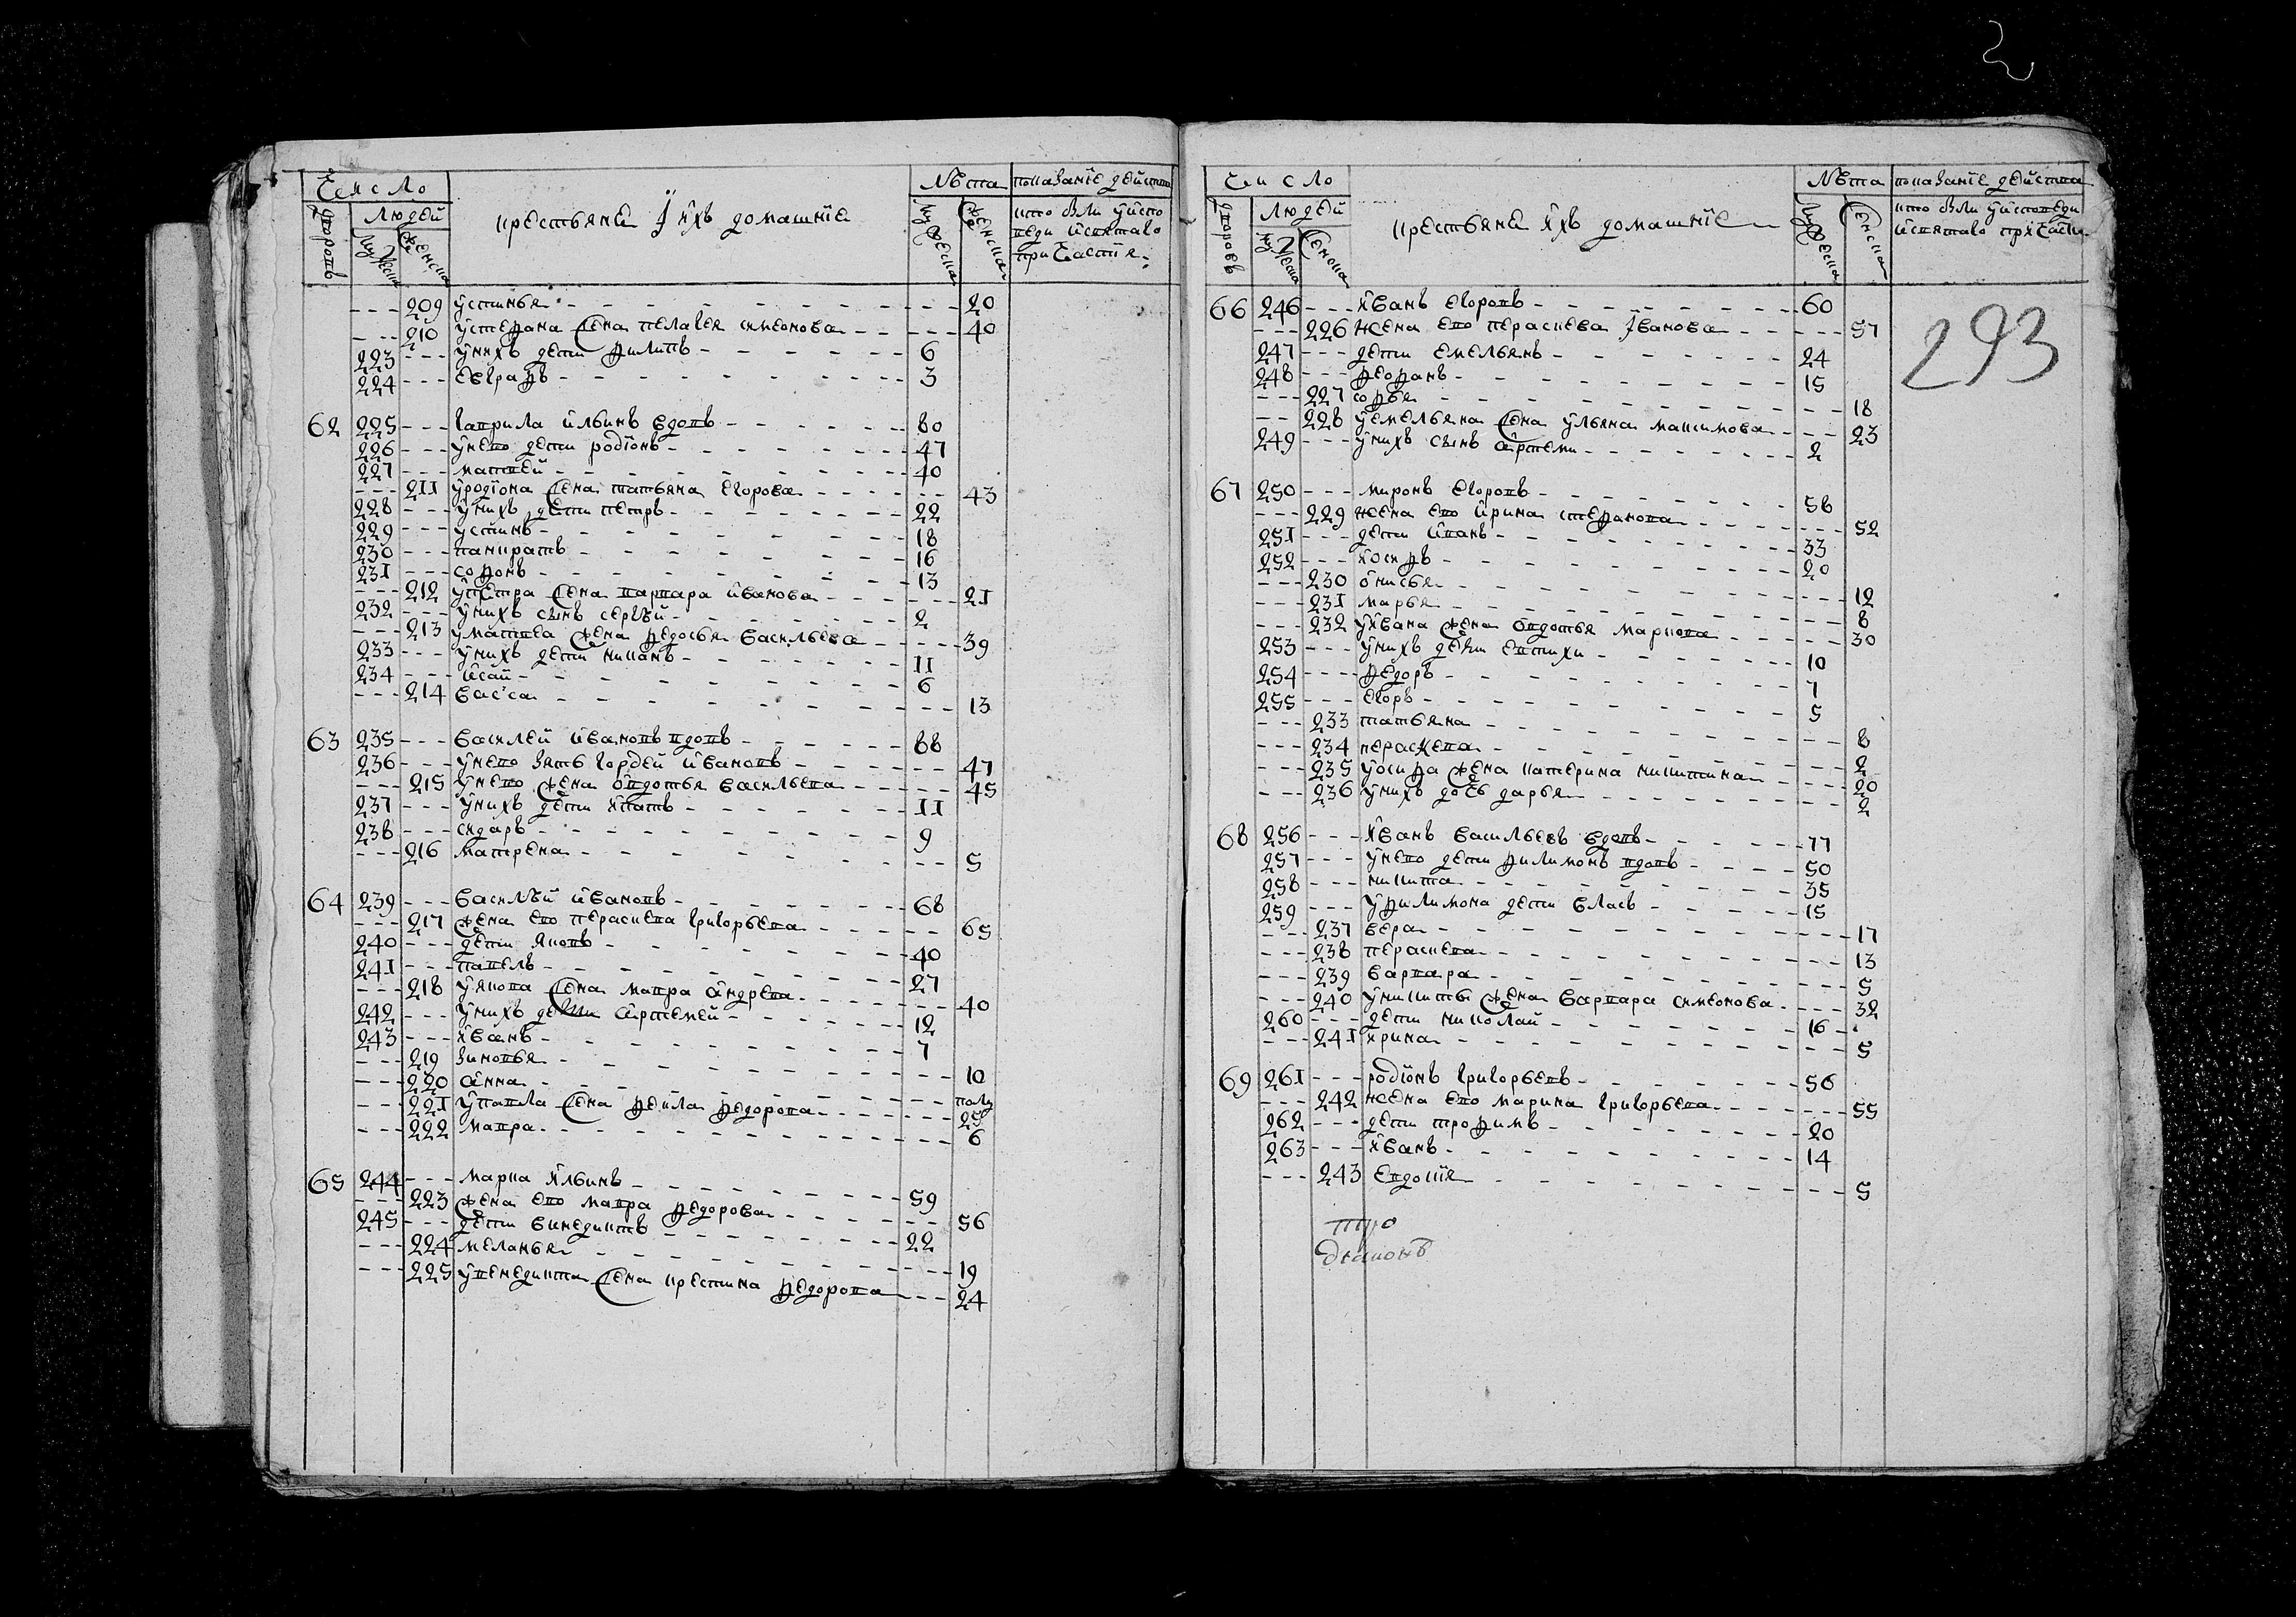 Число
Людей
дворовъ
Мужеска
Женска
крестьяне и ихъ домашние
Лѣта
Мужеска
Женска
показание действа
кто были у испо
веди и святаго
причастия
209 устинья 20
210 у степана жена пелагея симеонова 40
223 у нихъ дети филипъ 6
224 евграфъ 3
62 225 гаврила ильинъ вдовъ 80
226 у него дети родионъ 47
227 матвей 40
211 у родиона жена татьяна егорова 43
228 у нихъ дети петръ 22
229 устинъ 18
230 панкратъ 16
231 софонъ 13
212 у петра жена варвара иванова 21
232 у нихъ сынъ сергѣй 2
213 у матвеа жена федосья васильева 39
233 у нихъ дети никанъ 11
234 исай 6
214 васса 13
63 235 василей ивановъ вдовъ 88
236 у него зять гордей ивановъ 47
215 у него жена овдотья васильева 45
237 у нихъ дети ипатъ 11
238 сидаръ 9
216 матрена 5
64 239 василѣй ивановъ 68
217 жена ево пераскева григорьева 65
240 дети яковъ 40
241 павелъ 27
218 у якова жена мавра андрева 40
242 у нихъ дети артемей 12
243 иванъ 7
219 зиновья 10
220 анна полу
221 у павла жена фекла федорова 25
222 мавра 6
65 244 марка ильинъ 59
223 жена ево мавра федорова 56
245 дети винедиктъ 22
224 меланья 19
225 у венедикта жена крестина федорова 24
Число
Людей
дворовъ
Мужеска
Женска
крестьяне ихъ домашние
Лѣта
Мужеска
Женска
показание действа
кто были у исповеди
и святаго причасти
293
66 246 иванъ егоровъ 60
226 жена ево пераскева иванова 57
247 дети емельянъ 24
248 феофанъ 15
227 софья 18
228 у емельяна жена ульяна максимова 23
249 у нихъ сынъ артеми 2
67 250 миронъ егоровъ 58
229 жена ево ирина стефанова 52
251 дети иванъ 33
252 иосифъ 20
230 онисья 12
231 марья 8
232 у ивана жена овдотья маркова 30
253 у нихъ дети евтихи 10
254 федоръ 7
255 егоръ 5
233 татьяна 8
234 пераскева 2
235 у осифа жена катерина никитина 20
236 у нихъ дочь дарья 2
68 256 иванъ васильевъ вдовъ 77
257 у него дети филимонъ вдовъ 50
258 никита 35
259 у филимона дети власъ 15
237 вера 17
238 пераскева 13
239 варвара 5
240 у никиты жена варвара симеонова 32
260 дети николай 16
241 ирина 5
69 261 родионъ григорьевъ 56
242 жена ево марина григорьева 55
262 дети трофимъ 20
263 иванъ 14
243 евдокия 5
диаконъ